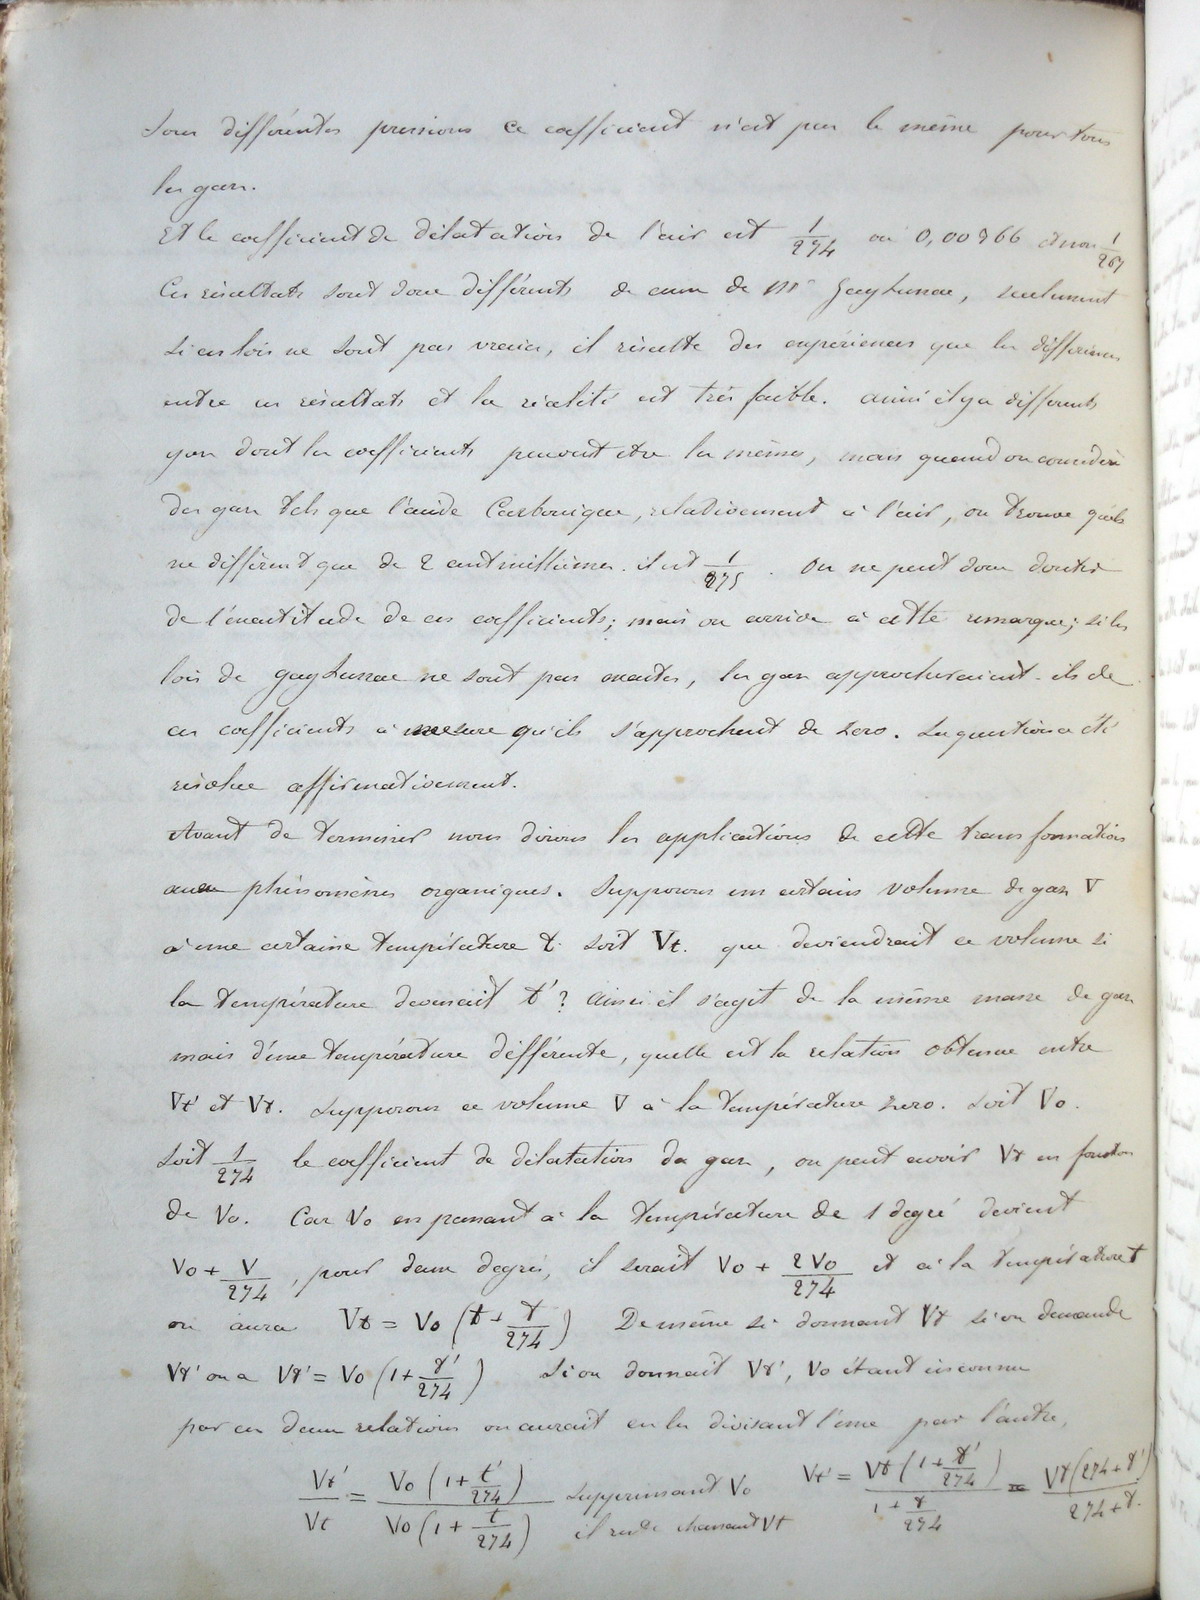 Sous différentes pressions ce coefficient n'est pas le même pour tous
les gaz.
Et le coefficient de dilatation de l'air est 1/274 ou 0,00366 et non 1/267
Ces résultats sont donc différents de ceux de Mr Gay Lussac, seulement
si ces lois ne sont pas vraies, il résulte des expériences que les différences
entre ces résultats et la réalité est très faible. ainsi il y a différents
gaz dont les coefficients peuvent être les mêmes, mais quand on considère
des gaz tels que l'acide Carbonique, relativement à l'air, on trouve qu'ils
ne diffèrent que de 2 cent millièmes. il est 1/275. On ne peut donc douter
de l'exactitude de ces coefficients; mais on arrive à cette remarque; si les
lois de gay Lussac ne sont pas exactes, les gaz approcheraient-ils de
ces coefficients à mesure qu'ils s'approchent de zero. La question a été
résolue affirmativement.
Avant de terminer nous dirons les applications de cette transformation
aux phénomènes organiques. Supposons un certain volume de gaz V
à une certaine température t. soit Vt. que deviendrait ce volume si
la température devenait t'? ainsi il s'agit de la même masse de gaz
mais d'une température différente, quelle est la relation obtenue entre
Vt' et Vt. Supposons ce volume V à la température zero. soit Vo.
Soit 1/274 le coefficient de dilatation du gaz, on peut avoir Vt en fonction
de Vo. Car Vo en passant à la température de 1 degré devient
Vo + V/274, pour deux degrés, il serait Vo + 2Vo/274 et à la température t
on aura Vt = Vo (t + t/274) De même si donnant Vt si on demande
Vt' on a Vt' = Vo (1 + t'/274) Si on donnait Vt', Vo étant inconnu
par ces deux relations on aurait en les divisant l'une par l'autre,
Vt'/Vt = Vo (1 + t'/274) / Vo (1 + t/274) supprimant Vo Vt' = Vt (1 + t'/274) / 1 + t/274 = Vt (274 + t') / 274 + t.
chassant Vt